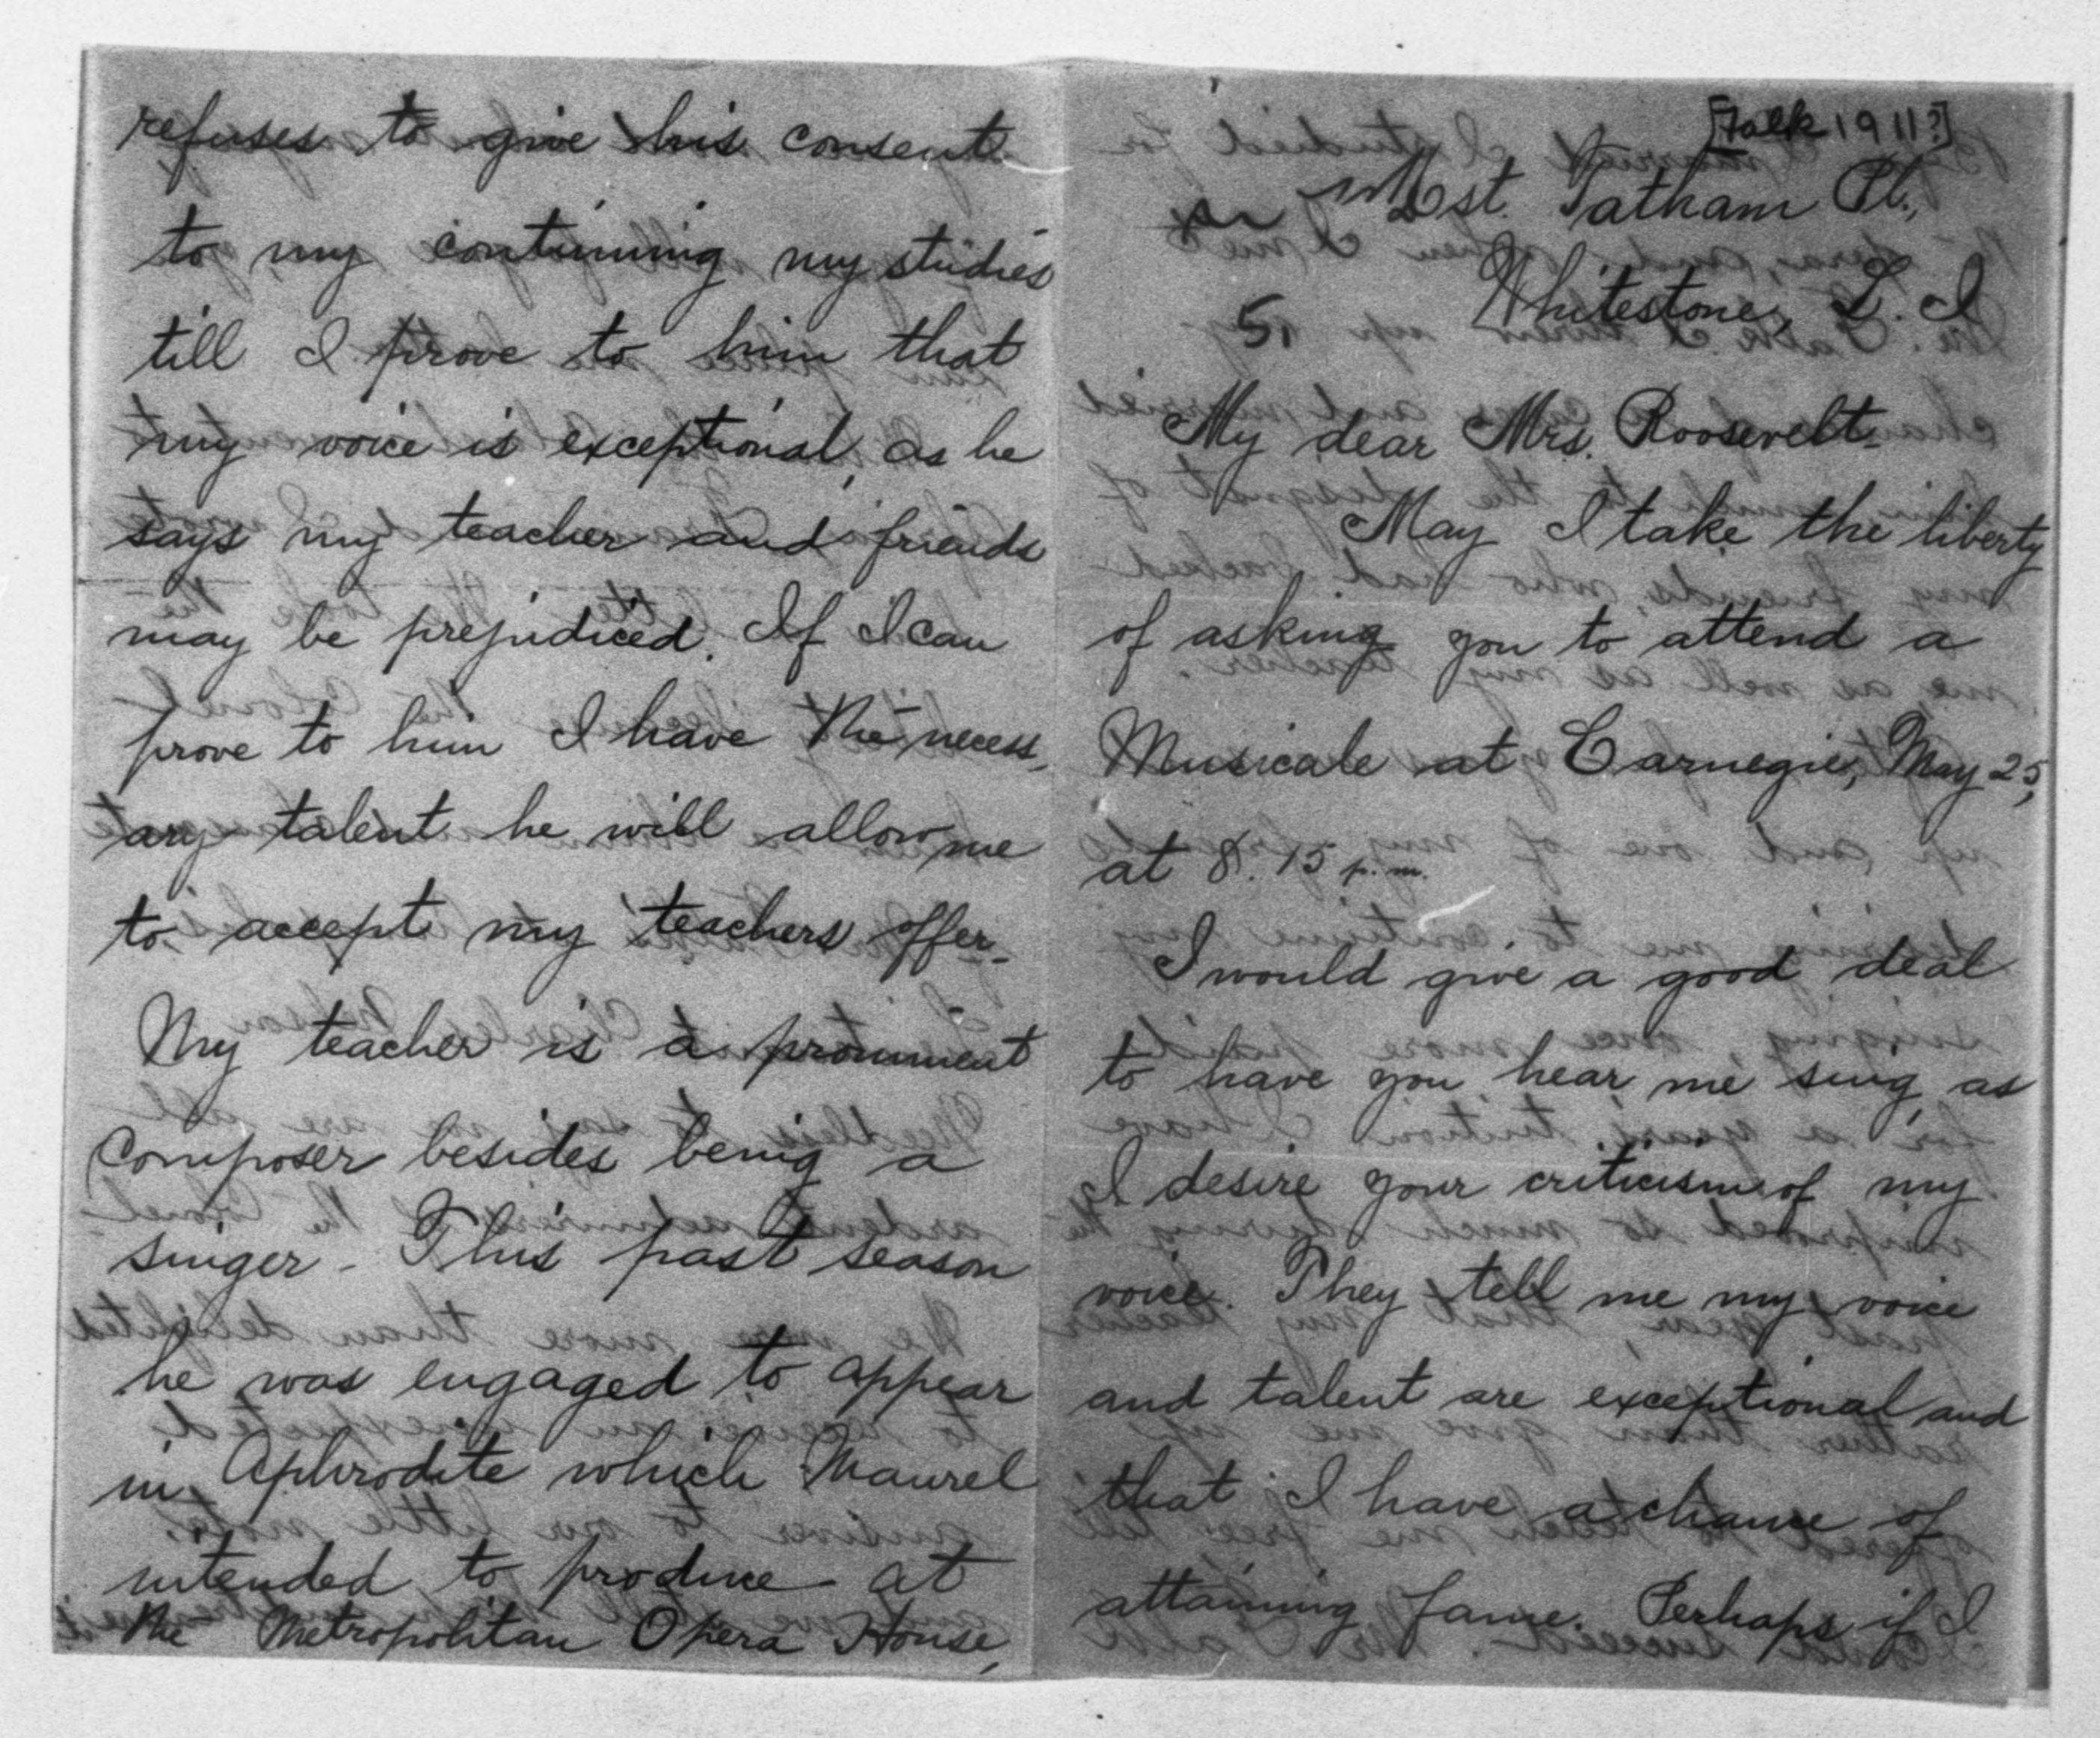 [Falk 1911?]
st. Tatham Pl.,
Whitestone, L. I
5.
My dear Mrs. Roosevelt-
May I take the liberty
of asking you to attend a
Musicale at Carnegie, May 25,
at 8.15 p.m.
I would give a good deal
to have you hear me sing, as
I desire your criticism of my
voice. They tell me my voice
and talent are exceptional and
that I have a chance of
attaining fame. Perhaps if I
refuses to give his consent
to my continuing my studies
till I prove to him that
my voice is exceptional, as he
says my teacher and friends
may be prejudiced. If I can
prove to him I have the necess-
ary talent he will allow me
to accept my teachers offer.
My teacher is a prominent
composer besides being a
singer - This past season
he was engaged to appear
in Aphrodite which Maurel
intended to produce at
the Metropolitan Opera House,